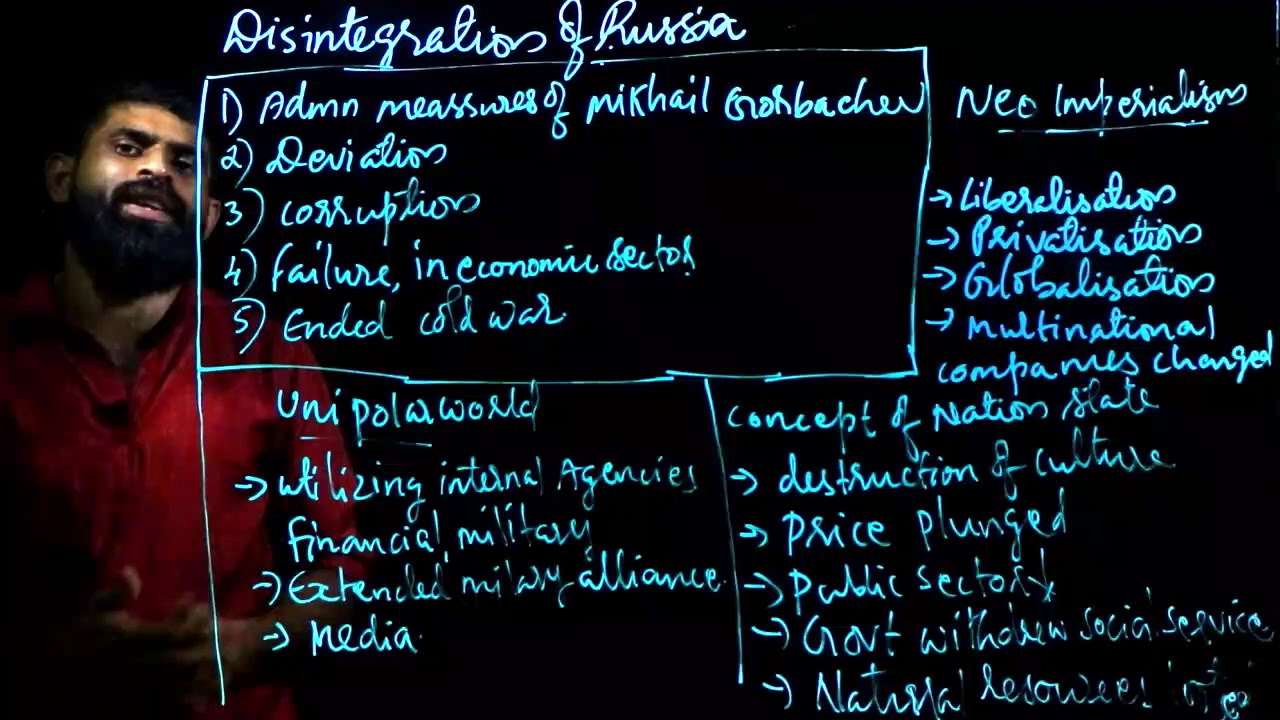 Disintegration of Russia
1) Admn meassures of Mikhail Gorbachev
2) Deviation
3) Corruption
4) Failure, in economic sector
5) Ended cold war.
Neo Imperialism
→ Liberalisation
→ Privatisation
→ Globalisation
→ Multinational
companies changed
Concept of Nation State
→ destruction of culture
→ Price plunged
→ Public Sector x
→ Govt withdrew social service
→ Natural resources
Unipolar world
→ Utilizing internal Agencies
Financial, military
→ Extended military alliance
→ Media.